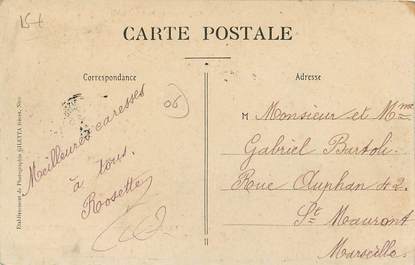 15 t
CARTE POSTALE
Correspondance
Adresse
Etablissement de Photographie GILETTA frères, Nice
Meilleures caresses
à tous
Rosette
06
M Monsieur et Mme
Gabriel Bartoli
Rue Auphan 42
St Mauront
Marseille